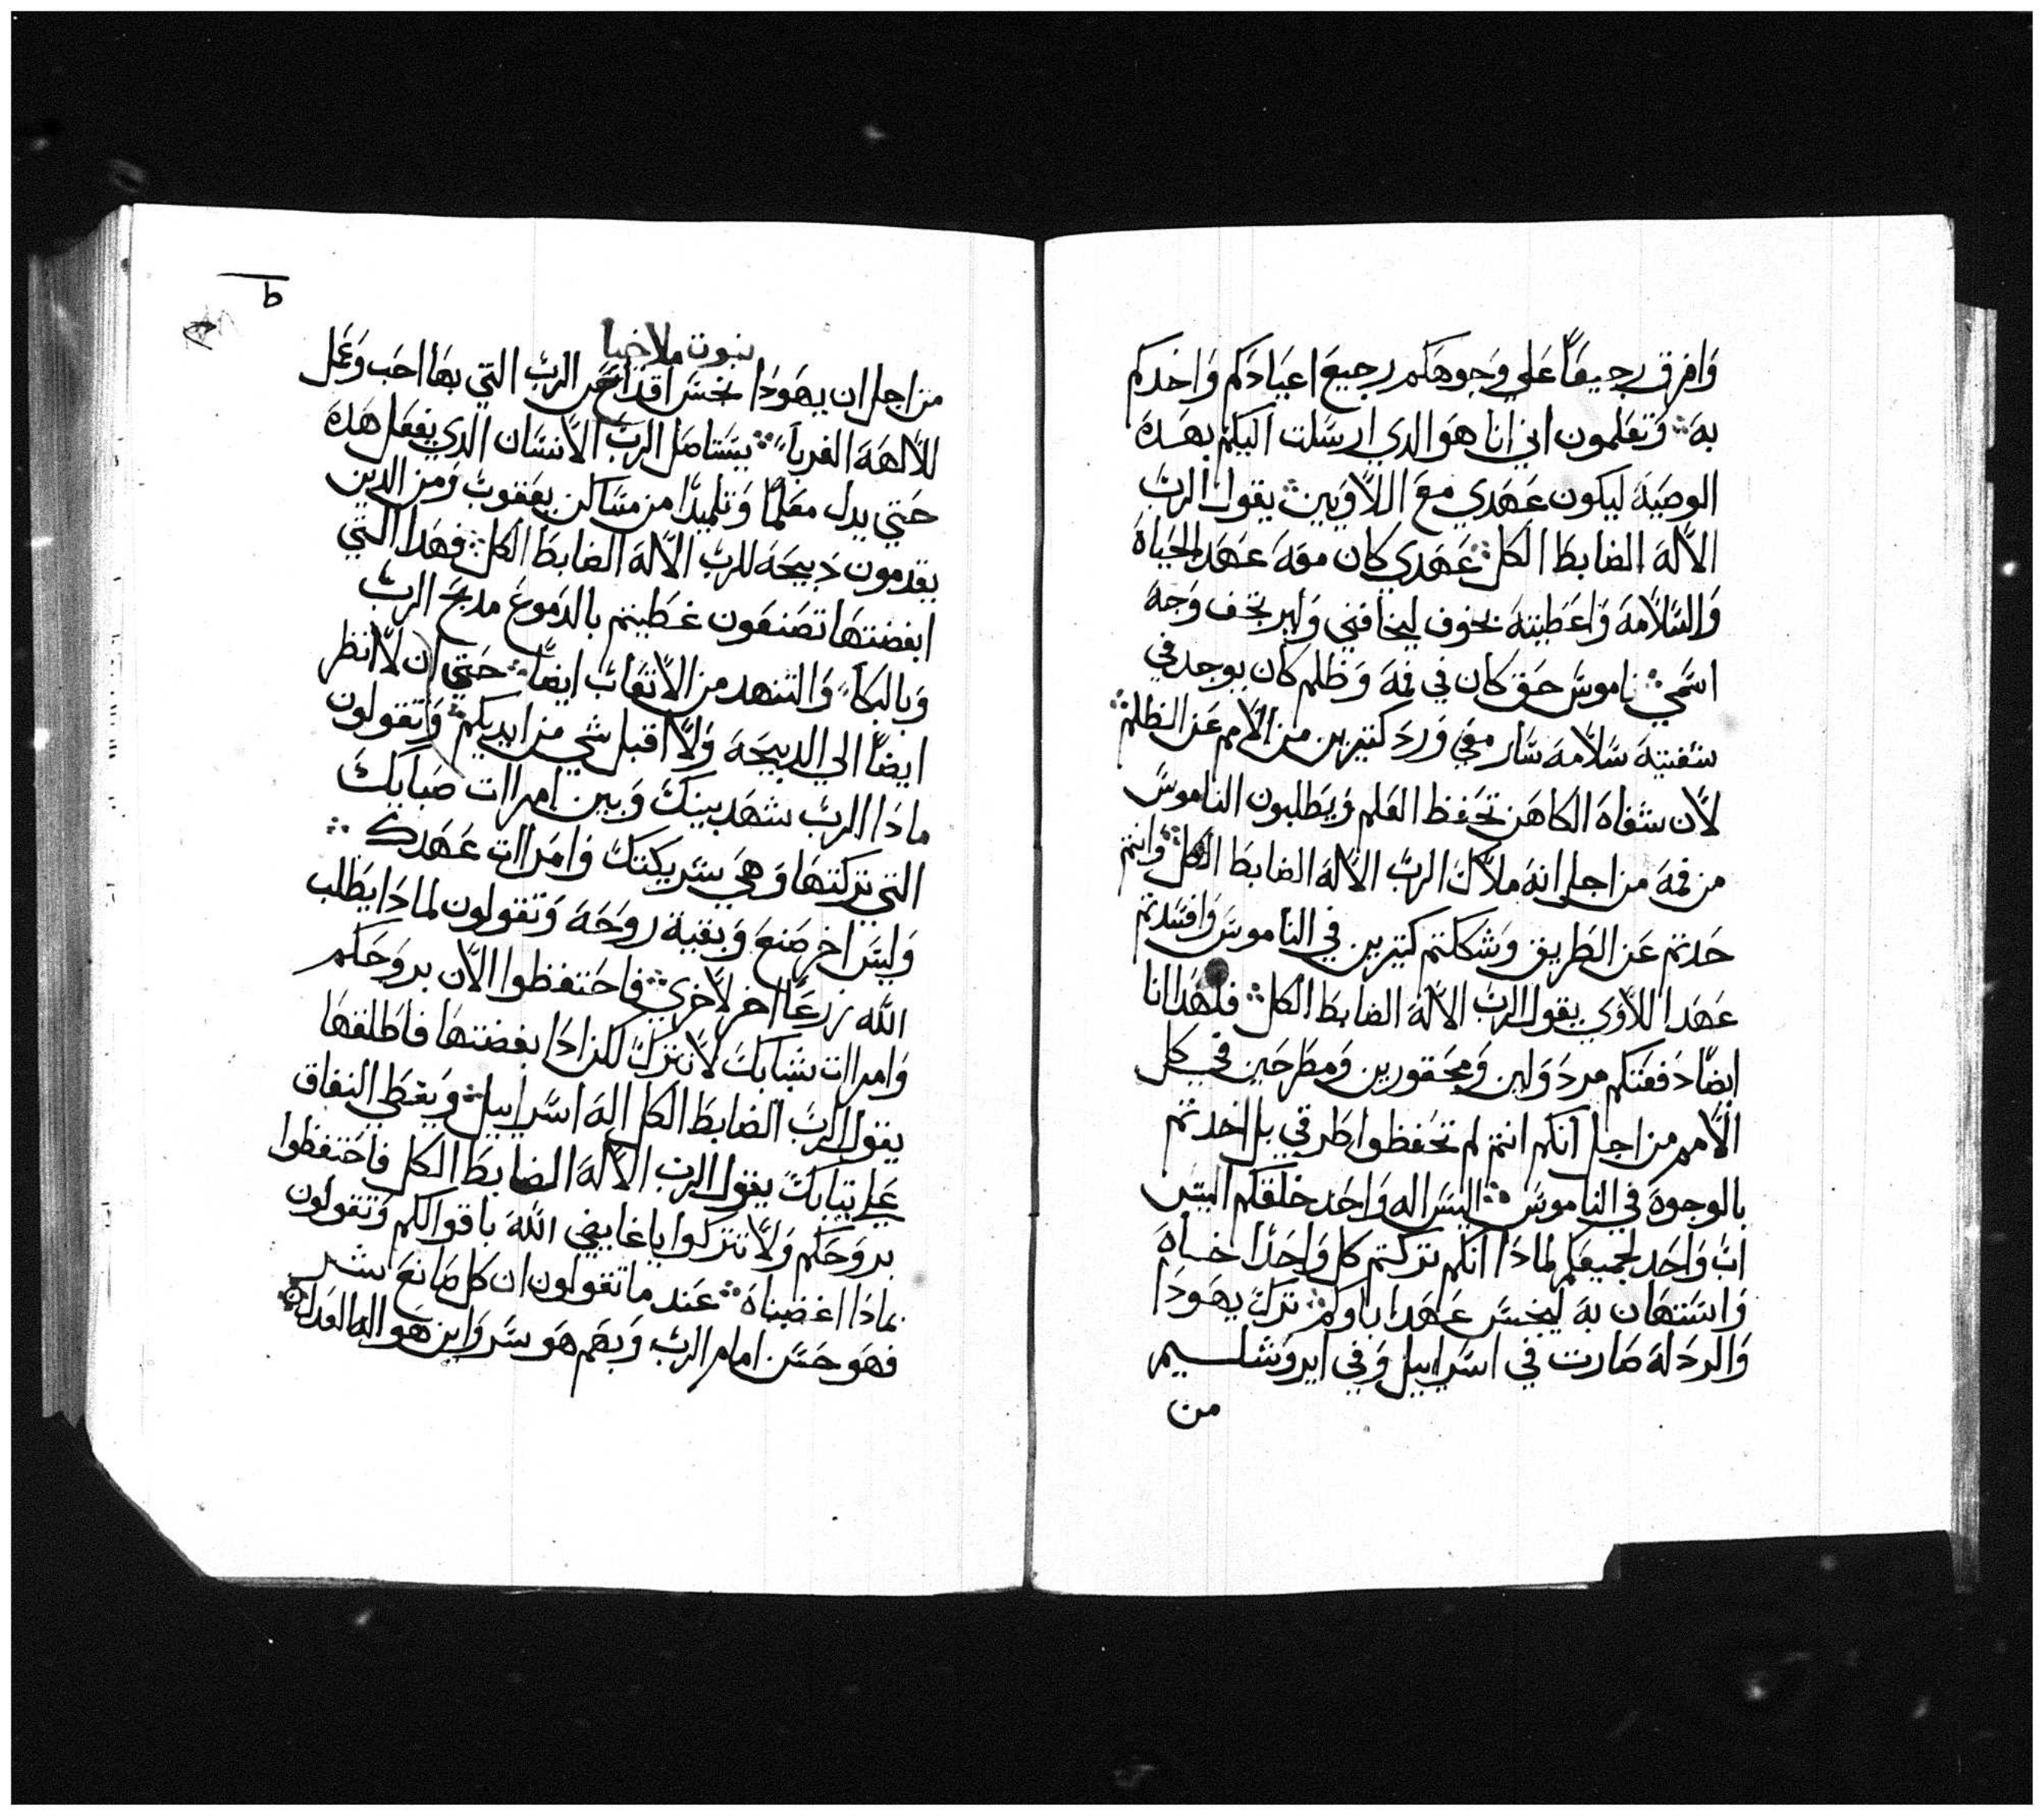 وَافرق رجيعًا عَلي وَجوهَكم رجيعَ اعيَادَكم وَاخدكم
بهَ܀ وَتعَلمون اني انا هوَ الدي ارسَلت اليكم بهَدهَ
الوصَيهَ ليكون عَهَدي معَ اللاَّويين܀ يقول الربّ
الالهَ الضابطَ الكل܀ عَهَدي كان معَهَ عَهَد الحَياهَ
وَالسَّلامَهَ وَاعَطيتهَ بخوف ليخافني وَلير تخف وَجهَ
اسَمي܀ ناموسَ حَق كان في فمهَ وَظلم كان يوجد في
شفتيهَ سَلامَهَ سَار معَي وَردَ كتيرين من الامم عَن الظلم܀
لان شفاهَ الكاهَن تحَفظ العَلم وَيطَلبون الناموسَ
من فمهَ من اجل انهَ ملاك الربّ الالهَ الضابطَ الكل܀ وَانتم
حَدتم عَن الطَريق وَشككتم كتيرين في الناموسَ وَافسَدتم
عَهَد اللاوَي يقول الربّ الالهَ الضابطَ الكل܀ فلهَدا انا
ايضًا دَفعَتكم مردَولين وَمحَقورين وَمطَرحَين في كل
الامم من اجل انكم انتم لم تحَفظوا طَرقي بل اخدتم
بالوجوهَ في الناموسَ܀ اليسَ اله وَاحَد خلقكم اليسَ
ابّ وَاحَد لجميعَكم لمادَا انكم تركتم كل وَاحَدًا اخاهَ
وَاستهَان بهَ ليخسَ عَهَد اباوكم܀ ترك يهَودَا
وَالردَلهَ صَارت في اسَراييل وَفي ايروَشليم
من
ط
نبوت ملاخيا
من اجل ان يهَودَا نخسَ اقداسَ الربّ التي بهَا احَب وَعَمل
للالهَهَ الغربا܀ يستاصَل الربّ الانسَان الدي يفعَل هَدهَ
حَتي يدل معَلمًا وَتلميدًا من مسَاكن يعَقوبّ وَمن الدين
يقدمون دَبيحَهَ للربّ الالهَ الضابطَ الكل܀ فهَدا التي
ابغضتهَا تصَنعَون غطَيتم بالدموعَ مدبحَ الربّ
وَبالبكا وَالتنهَد من الاتعَابّ ايضًا܀ حَتي ان لا انظر
ايضًا الي الدبيحَهَ وَلا اقبل شي من ايديكم܀ وَتقولون
مادَا الربّ شهَد بينكَ وَبين امراات صَباك
التي تركتهَا وَهَي شريكتكَ وَامراات عَهَدك܀
وَليسَ اخر صَنعَ وَبقيهَ روحَهَ وَتقولون لمادَا يطَلب
الله زرعًَا اخر لاخري܀ فاحَتفظوا الان بروحَكم
وَامراات شبابكَ لا تترك لكن ادَا بغضتهَا فاطَلقهَا
يقول الربّ الضابطَ الكل الهَ اسَراييل܀ وَيغطَي النفاق
عَلي تيابكَ يقول الربّ الالهَ الضابطَ الكل فاحَتفظوا
بروحَكم وَلا تتركوا ياغايضي اللهَ باقوالكم وَتقولون
بمادَا اغضبناهَ܀ عَند ما تقولون ان كل صَانعَ شر
فهَو حَسَن امام الربّ وَبهَم هَو سَر وَاين هَو اله العَدل܀